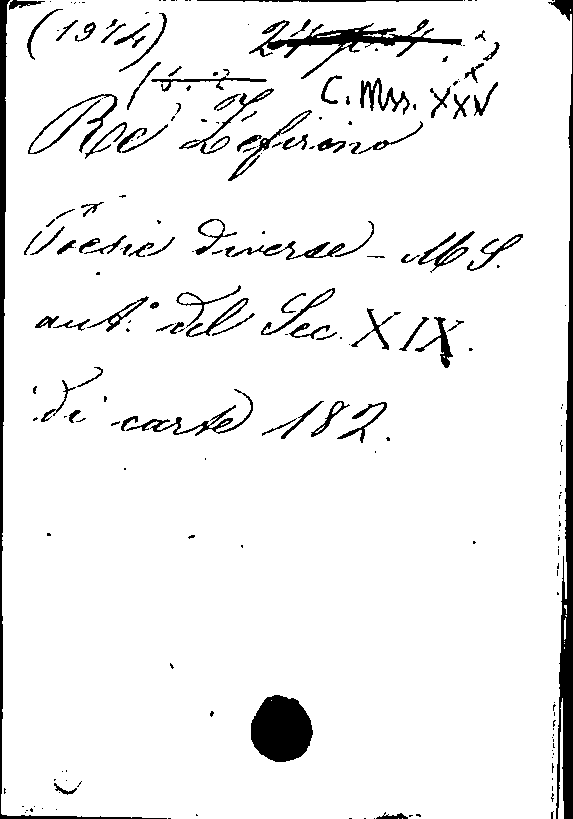 (1974)
C. Mss. XXV
Re Zefirino
Poesie diverse - MS.
aut.° del Sec. XIX.
di carte 182.